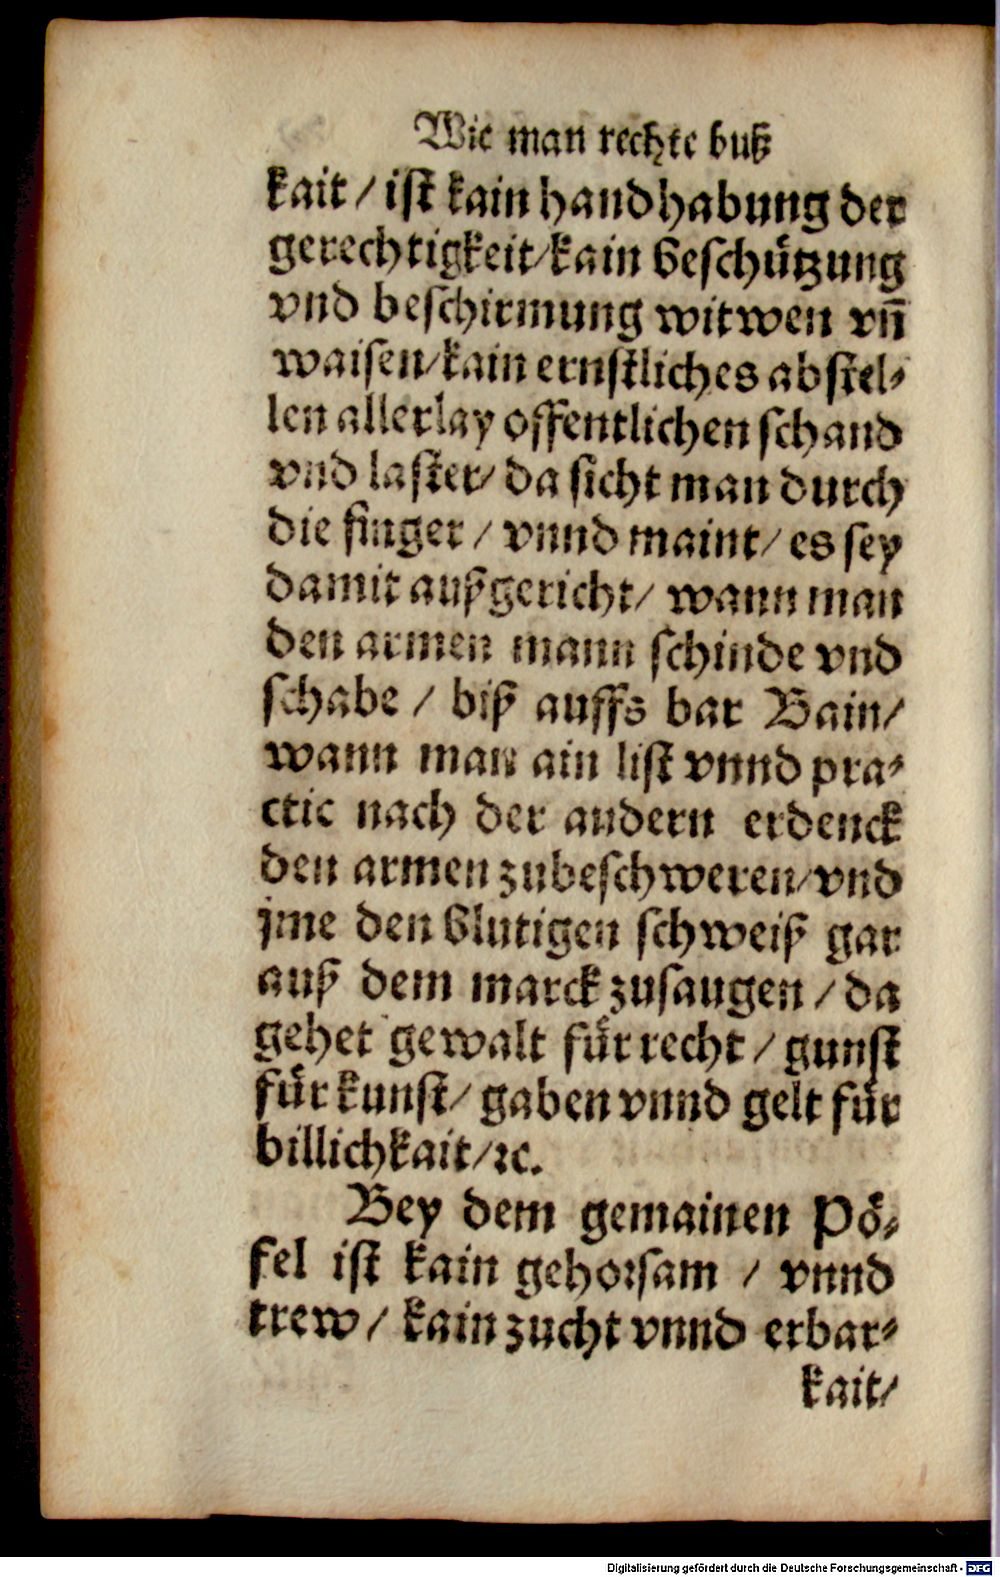 Wie man rechte buß
kait / ist kain handhabung der
gerechtigkeit/kain beschützung
vnd beschirmung witwen vn̄
waisen/kain ernstliches abstel-
len allerlay offentlichen schand
vnd laster/ da sicht man durch
die finger / vnnd maint/ es sey
damit außgericht/ wann man
den armen mann schinde vnd
schabe / biß auffs bar Bain/
wann man ain list vnnd pra-
ctic nach der andern erdenck
den armen zubeschweren/vnd
jme den blutigen schweiß gar
auß dem marck zusaugen / da
gehet gewalt für recht / gunst
für kunst/ gaben vnnd gelt für
billichkait/ꝛc.
Bey dem gemainen Pö-
fel ist kain gehorsam / vnnd
trew / kain zucht vnnd erbar-
kait/
Digitalisierung gefördert durch die Deutsche Forschungsgemeinschaft - DFG